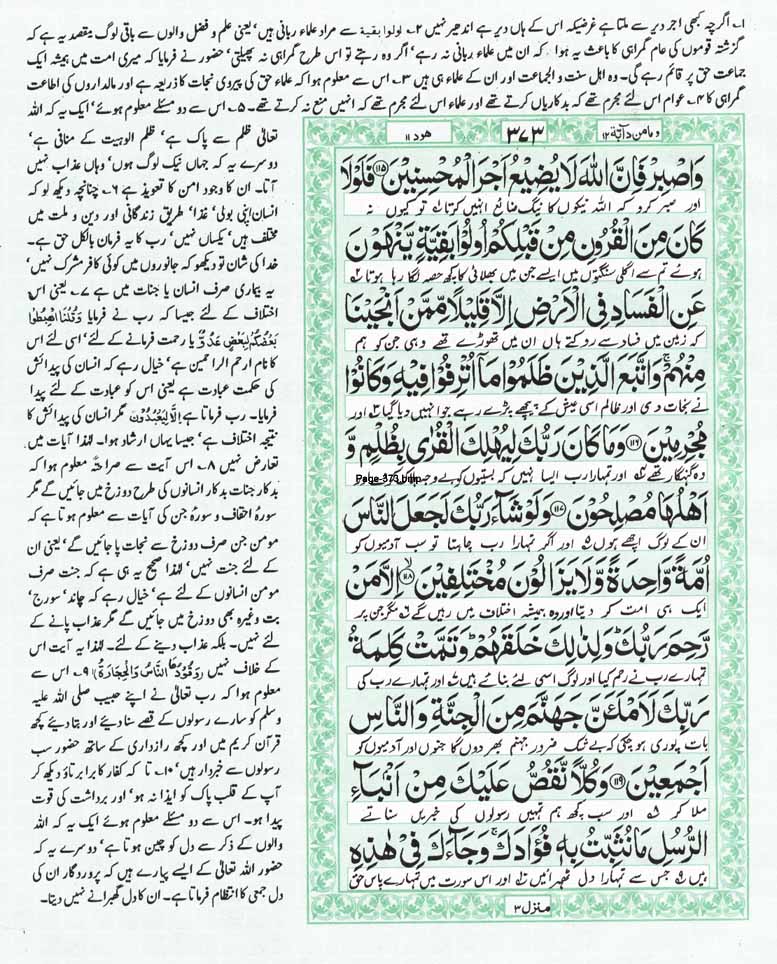 ۱۔ اگرچہ کبھی اجر دیر سے ملتا ہے غرضیکہ اس کے ہاں دیر ہے اندھیر نہیں ۲۔ اولوا بقیۃ سے مراد علماء ربانی ہیں' یعنی علم و فضل والوں سے باقی لوگ مقصد یہ ہے کہ
گزشتہ قوموں کی عام گمراہی کا باعث یہ ہوا کہ ان میں علماء ربانی نہ رہے' اگر وہ رہتے تو اس طرح گمراہی نہ پھیلتی' حضور نے فرمایا کہ میری امت میں ہمیشہ ایک
جماعت حق پر قائم رہے گی۔ وہ اہل سنت و الجماعت اور ان کے علماء ہی ہیں ۳۔ اس سے معلوم ہوا کہ علماء حق کی پیروی نجات کا ذریعہ ہے اور مالداروں کی اطاعت
گمراہی کا ۴۔ عوام اس لئے مجرم تھے کہ بدکاریاں کرتے تھے اور علماء اس لئے مجرم تھے کہ انہیں منع نہ کرتے تھے۔ ۵۔ اس سے دو مسئلے معلوم ہوئے' ایک یہ کہ اللہ
تعالیٰ ظلم سے پاک ہے' ظلم الوہیت کے منافی ہے'
دوسرے یہ کہ جہاں نیک لوگ ہوں' وہاں عذاب نہیں
آتا۔ ان کا وجود امن کا تعویذ ہے ۶۔ چنانچہ دیکھ لو کہ
انسان اپنی بولی' غذا' طریق زندگانی اور دین و ملت میں
مختلف ہیں' یکساں نہیں' رب کا یہ فرمان بالکل حق ہے۔
خدا کی شان تو دیکھو کہ جانوروں میں کوئی کافر مشرک نہیں'
یہ بیماری صرف انسان یا جنات میں ہے ۷۔ یعنی اس
اختلاف کے لئے جیسا کہ رب نے فرمایا وَقُلْنَا اهْبِطُوْا
بَعْضُكُمْ لِبَعْضٍ عَدُوٌّ یا رحمت فرمانے کے لئے' اسی لئے اس
کا نام ارحم الراحمین ہے' خیال رہے کہ انسان کی پیدائش
کی حکمت عبادت ہے یعنی اس کو عبادت کے لئے پیدا
فرمایا۔ رب فرماتا ہے اِلَّا لِيَعْبُدُوْنَ مگر انسان کی پیدائش کا
نتیجہ اختلاف ہے' جیسا یہاں ارشاد ہوا۔ لہٰذا آیات میں
تعارض نہیں ۸۔ اس آیت سے صراحتہً معلوم ہوا کہ
بدکار جنات بدکار انسانوں کی طرح دوزخ میں جائیں گے مگر
سورۂ احقاف و سورۂ جن کی آیات سے معلوم ہوتا ہے کہ
مومن جن صرف دوزخ سے نجات پا جائیں گے' یعنی ان
کے لئے جنت نہیں' لہٰذا صحیح یہ ہی ہے کہ جنت صرف
مومن انسانوں کے لئے ہے' خیال رہے کہ چاند' سورج'
بت وغیرہ بھی دوزخ میں جائیں گے مگر عذاب پانے کے
لئے نہیں۔ بلکہ عذاب دینے کے لئے۔ لہٰذا یہ آیت اس
کے خلاف نہیں (وَقُوْدُهَا النَّاسُ وَالْحِجَارَةُ) ۹۔ اس سے
معلوم ہوا کہ رب تعالیٰ نے اپنے حبیب صلی اللہ علیہ
وسلم کو سارے رسولوں کے قصے سنا دیئے اور بتا دیئے کچھ
قرآن کریم میں اور کچھ رازداری کے ساتھ حضور سب
رسولوں سے خبردار ہیں' ۱۰۔ تا کہ کفار کا برا برتاؤ دیکھ کر
آپ کے قلب پاک کو ایذا نہ ہو' اور برداشت کی قوت
پیدا ہو۔ اس سے دو مسئلے معلوم ہوئے ایک یہ کہ اللہ
والوں کے ذکر سے دل کو چین ہوتا ہے' دوسرے یہ کہ
حضور اللہ تعالیٰ کے ایسے پیارے ہیں کہ پروردگار ان کی
دل جمعی کا انتظام فرماتا ہے۔ ان کا دل گھبرانے نہیں دیتا۔
ومامن دآبۃ ۱۲ ۳۷۳ ھود ۱۱
وَاصْبِرْ فَاِنَّ اللّٰهَ لَا يُضِيْعُ اَجْرَ الْمُحْسِنِيْنَ ۝۱۱۵ فَلَوْلَا
اور صبر کرو کہ اللہ نیکوں کا نیگ ضائع نہیں کرتا تو کیوں نہ
كَانَ مِنَ الْقُرُوْنِ مِنْ قَبْلِكُمْ اُولُوْا بَقِيَّةٍ يَّنْهَوْنَ
ہوئے تم سے اگلی سنگتوں میں ایسے جن میں بھلائی کا کچھ حصہ لگا رہا ہوتا ۲
عَنِ الْفَسَادِ فِى الْاَرْضِ اِلَّا قَلِيْلًا مِّمَّنْ اَنْجَيْنَا
کہ زمین میں فساد سے روکتے ہاں ان میں تھوڑے تھے وہی جن کو ہم
مِنْهُمْ ۚ وَاتَّبَعَ الَّذِيْنَ ظَلَمُوْا مَآ اُتْرِفُوْا فِيْهِ وَكَانُوْا
نے نجات دی اور ظالم اسی عیش کے پیچھے پڑے رہے جو انہیں دیا گیا ۳ اور
مُجْرِمِيْنَ ۝۱۱۶ وَمَا كَانَ رَبُّكَ لِيُهْلِكَ الْقُرٰى بِظُلْمٍ وَّ
وہ گنہگار تھے ۴ اور تمہارا رب ایسا نہیں کہ بستیوں کو بے وجہ ہلاک کر دے اور
Page-373.bmp
اَهْلُهَا مُصْلِحُوْنَ ۝۱۱۷ وَلَوْ شَآءَ رَبُّكَ لَجَعَلَ النَّاسَ
ان کے لوگ اچھے ہوں ۵ اور اگر تمہارا رب چاہتا تو سب آدمیوں کو
اُمَّةً وَّاحِدَةً وَّلَا يَزَالُوْنَ مُخْتَلِفِيْنَ ۝۱۱۸ اِلَّا مَنْ
ایک ہی امت کر دیتا اور وہ ہمیشہ اختلاف میں رہیں گے ۶ مگر جن پر
رَّحِمَ رَبُّكَ ؕ وَلِذٰلِكَ خَلَقَهُمْ ؕ وَتَمَّتْ كَلِمَةُ
تمہارے رب نے رحم کیا اور لوگ اسی لئے بنائے ہیں ۷ اور تمہارے رب کی
رَبِّكَ لَاَمْلَئَنَّ جَهَنَّمَ مِنَ الْجِنَّةِ وَالنَّاسِ
بات پوری ہو چکی کہ بے شک ضرور جہنم بھر دوں گا جنوں اور آدمیوں کو
اَجْمَعِيْنَ ۝۱۱۹ وَكُلًّا نَّقُصُّ عَلَيْكَ مِنْ اَنْۢبَآءِ
ملا کر ۸ اور سب کچھ ہم تمہیں رسولوں کی خبریں سناتے
الرُّسُلِ مَا نُثَبِّتُ بِهٖ فُؤَادَكَ ۚ وَجَآءَكَ فِىْ هٰذِهِ
ہیں ۹ جس سے تمہارا دل ٹھہرائیں ۱۰ اور اس سورت میں تمہارے پاس حق
منزل ۳